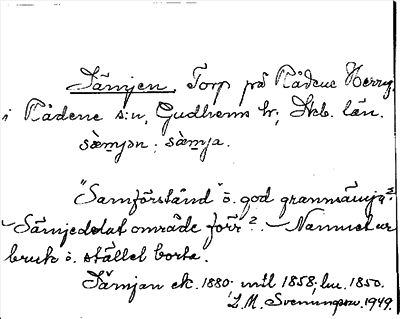 Sämjen, Torp på Rådene Herrg.
i Rådene s:n, Gudhems hr; Skb. län.
sæ̀mjən; sæ̀mja.
"Samförstånd" o. god grannsämja?
- Sämjedelat område förr? - Namnet ur
bruk o. stället borta.
Sämjan ek. 1880. mtl 1858; hu. 1850.
L.M. Svenungsson. 1949.